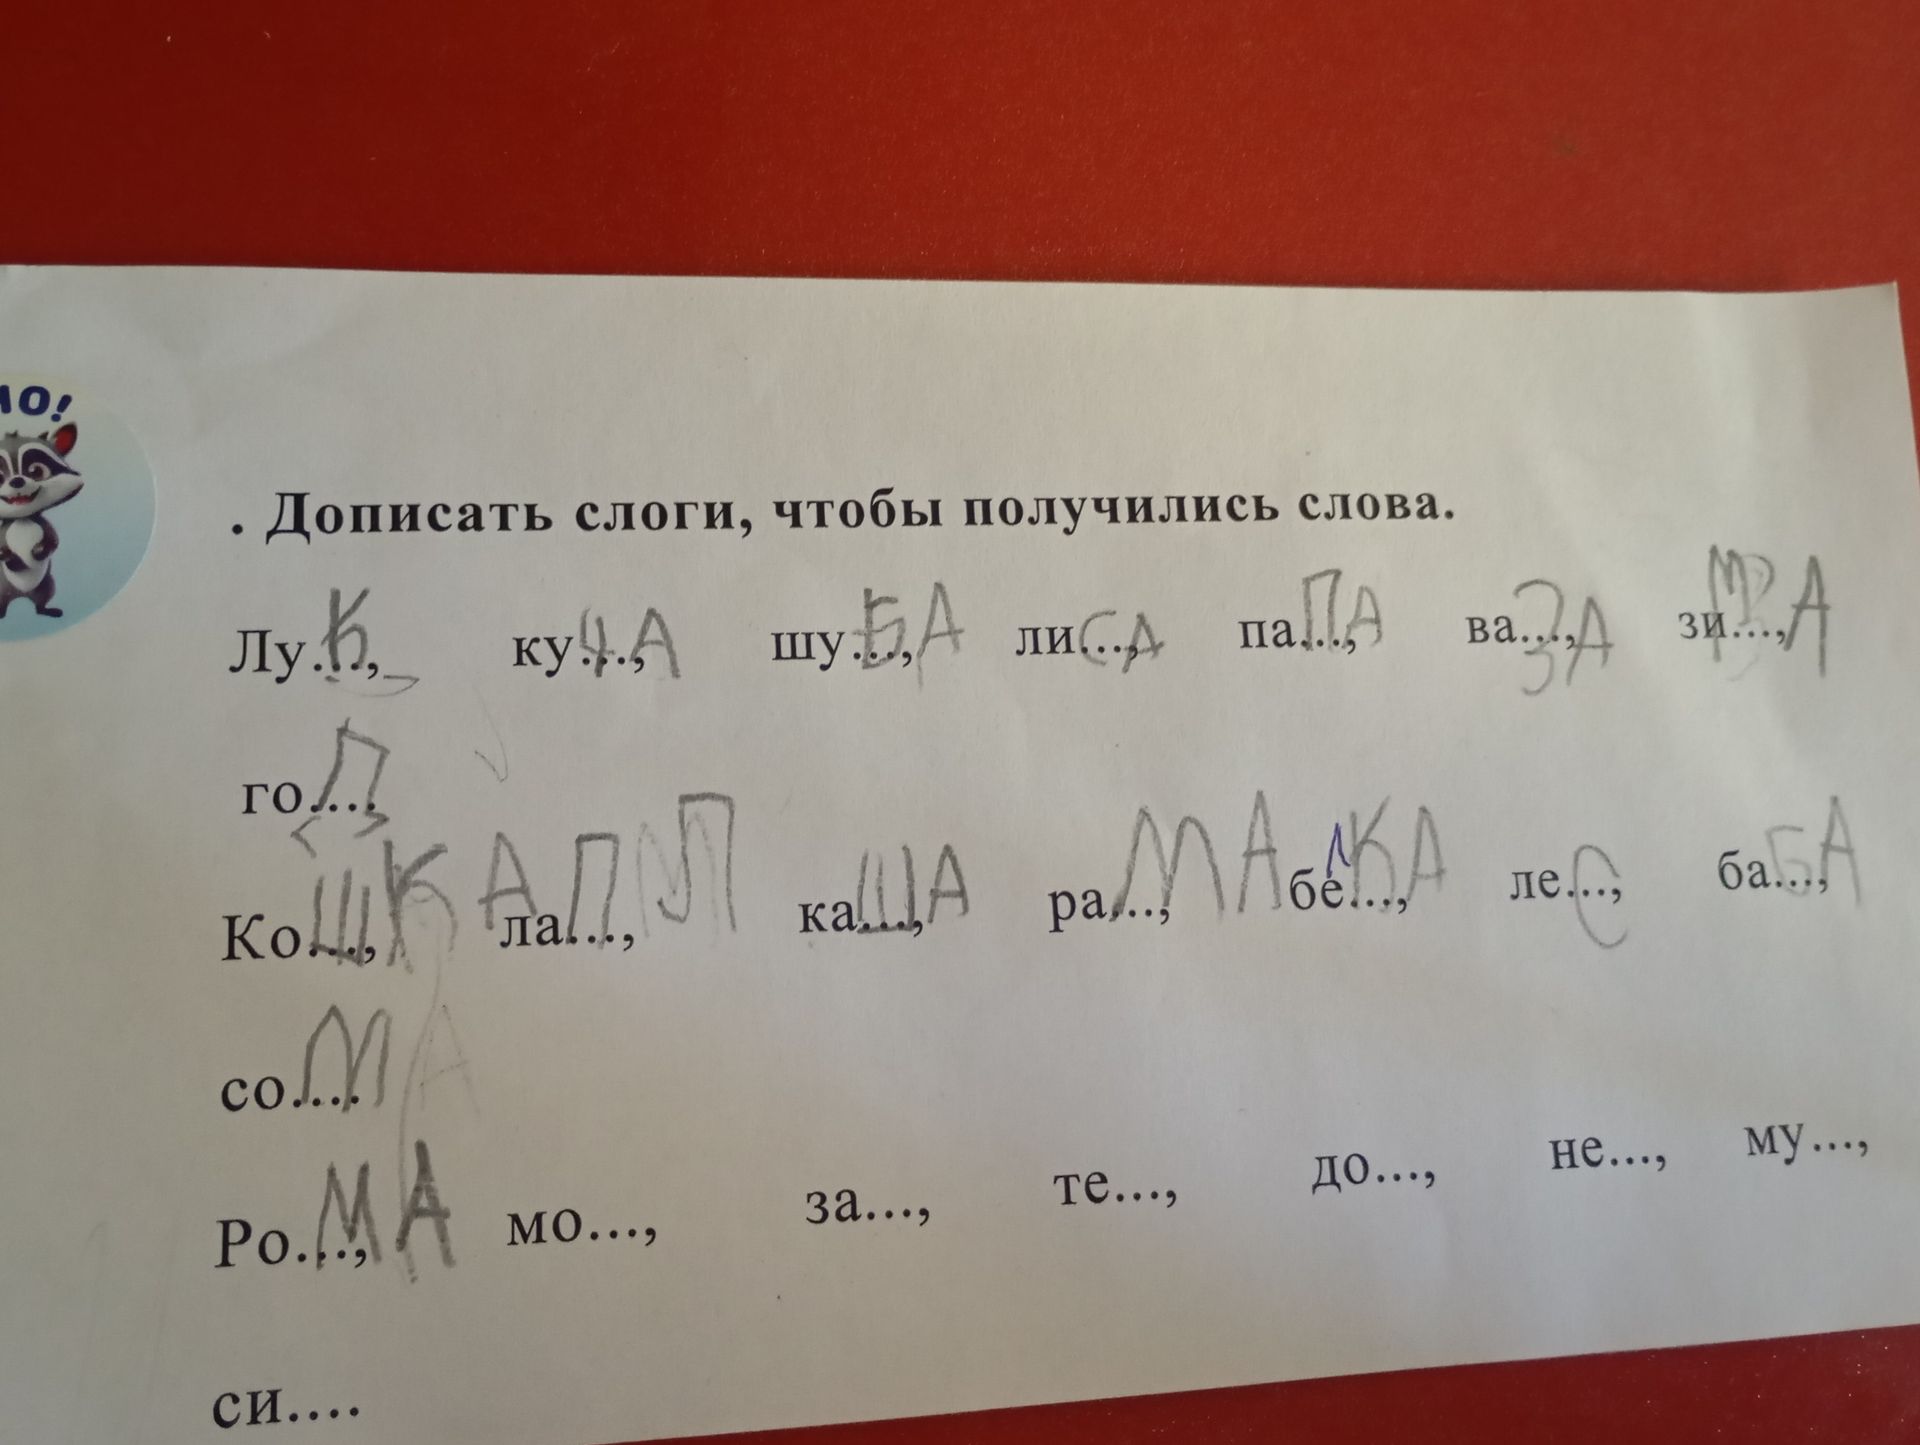 . Дописать слоги, чтобы получились слова.
Лу...К, ку...ЧА, шу...БА, ли...СА, па...ПА, ва...ЗА, зи...МА,
го...Д
Ко...ШКА, ла...П, ка...ША, ра...МА, бе...лКА, ле...С, ба...БА,
со....МА
Ро...МА, мо..., за..., те..., до..., не..., му...,
си....